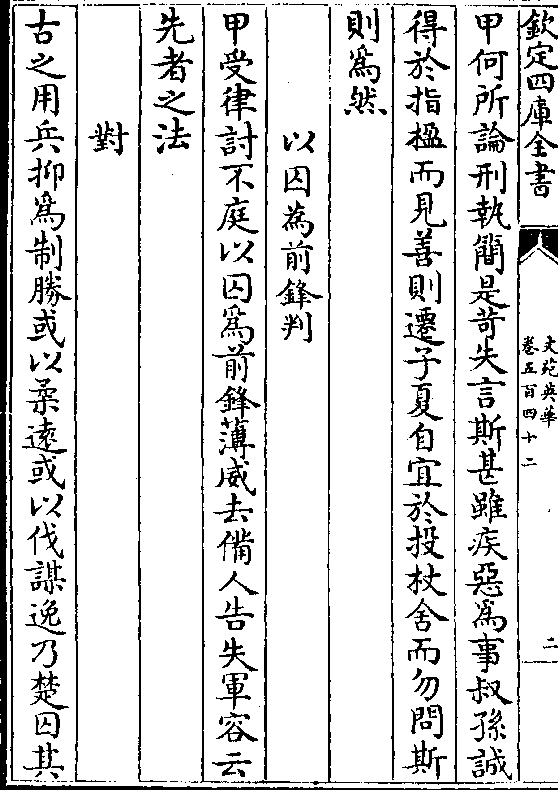 欽定四庫全書
文苑英華
卷五百四十二
二
甲何所論刑執簡是苛失言斯甚雖疾惡爲事叔孫誠
得於指楹而見善則遷子夏自宜於投杖舍而勿問斯
則爲然
以囚為前鋒判
甲受律討不庭以囚爲前鋒薄威去備人告失軍容云
先者之法
對
古之用兵抑爲制勝或以柔遠或以伐謀逸乃楚囚其